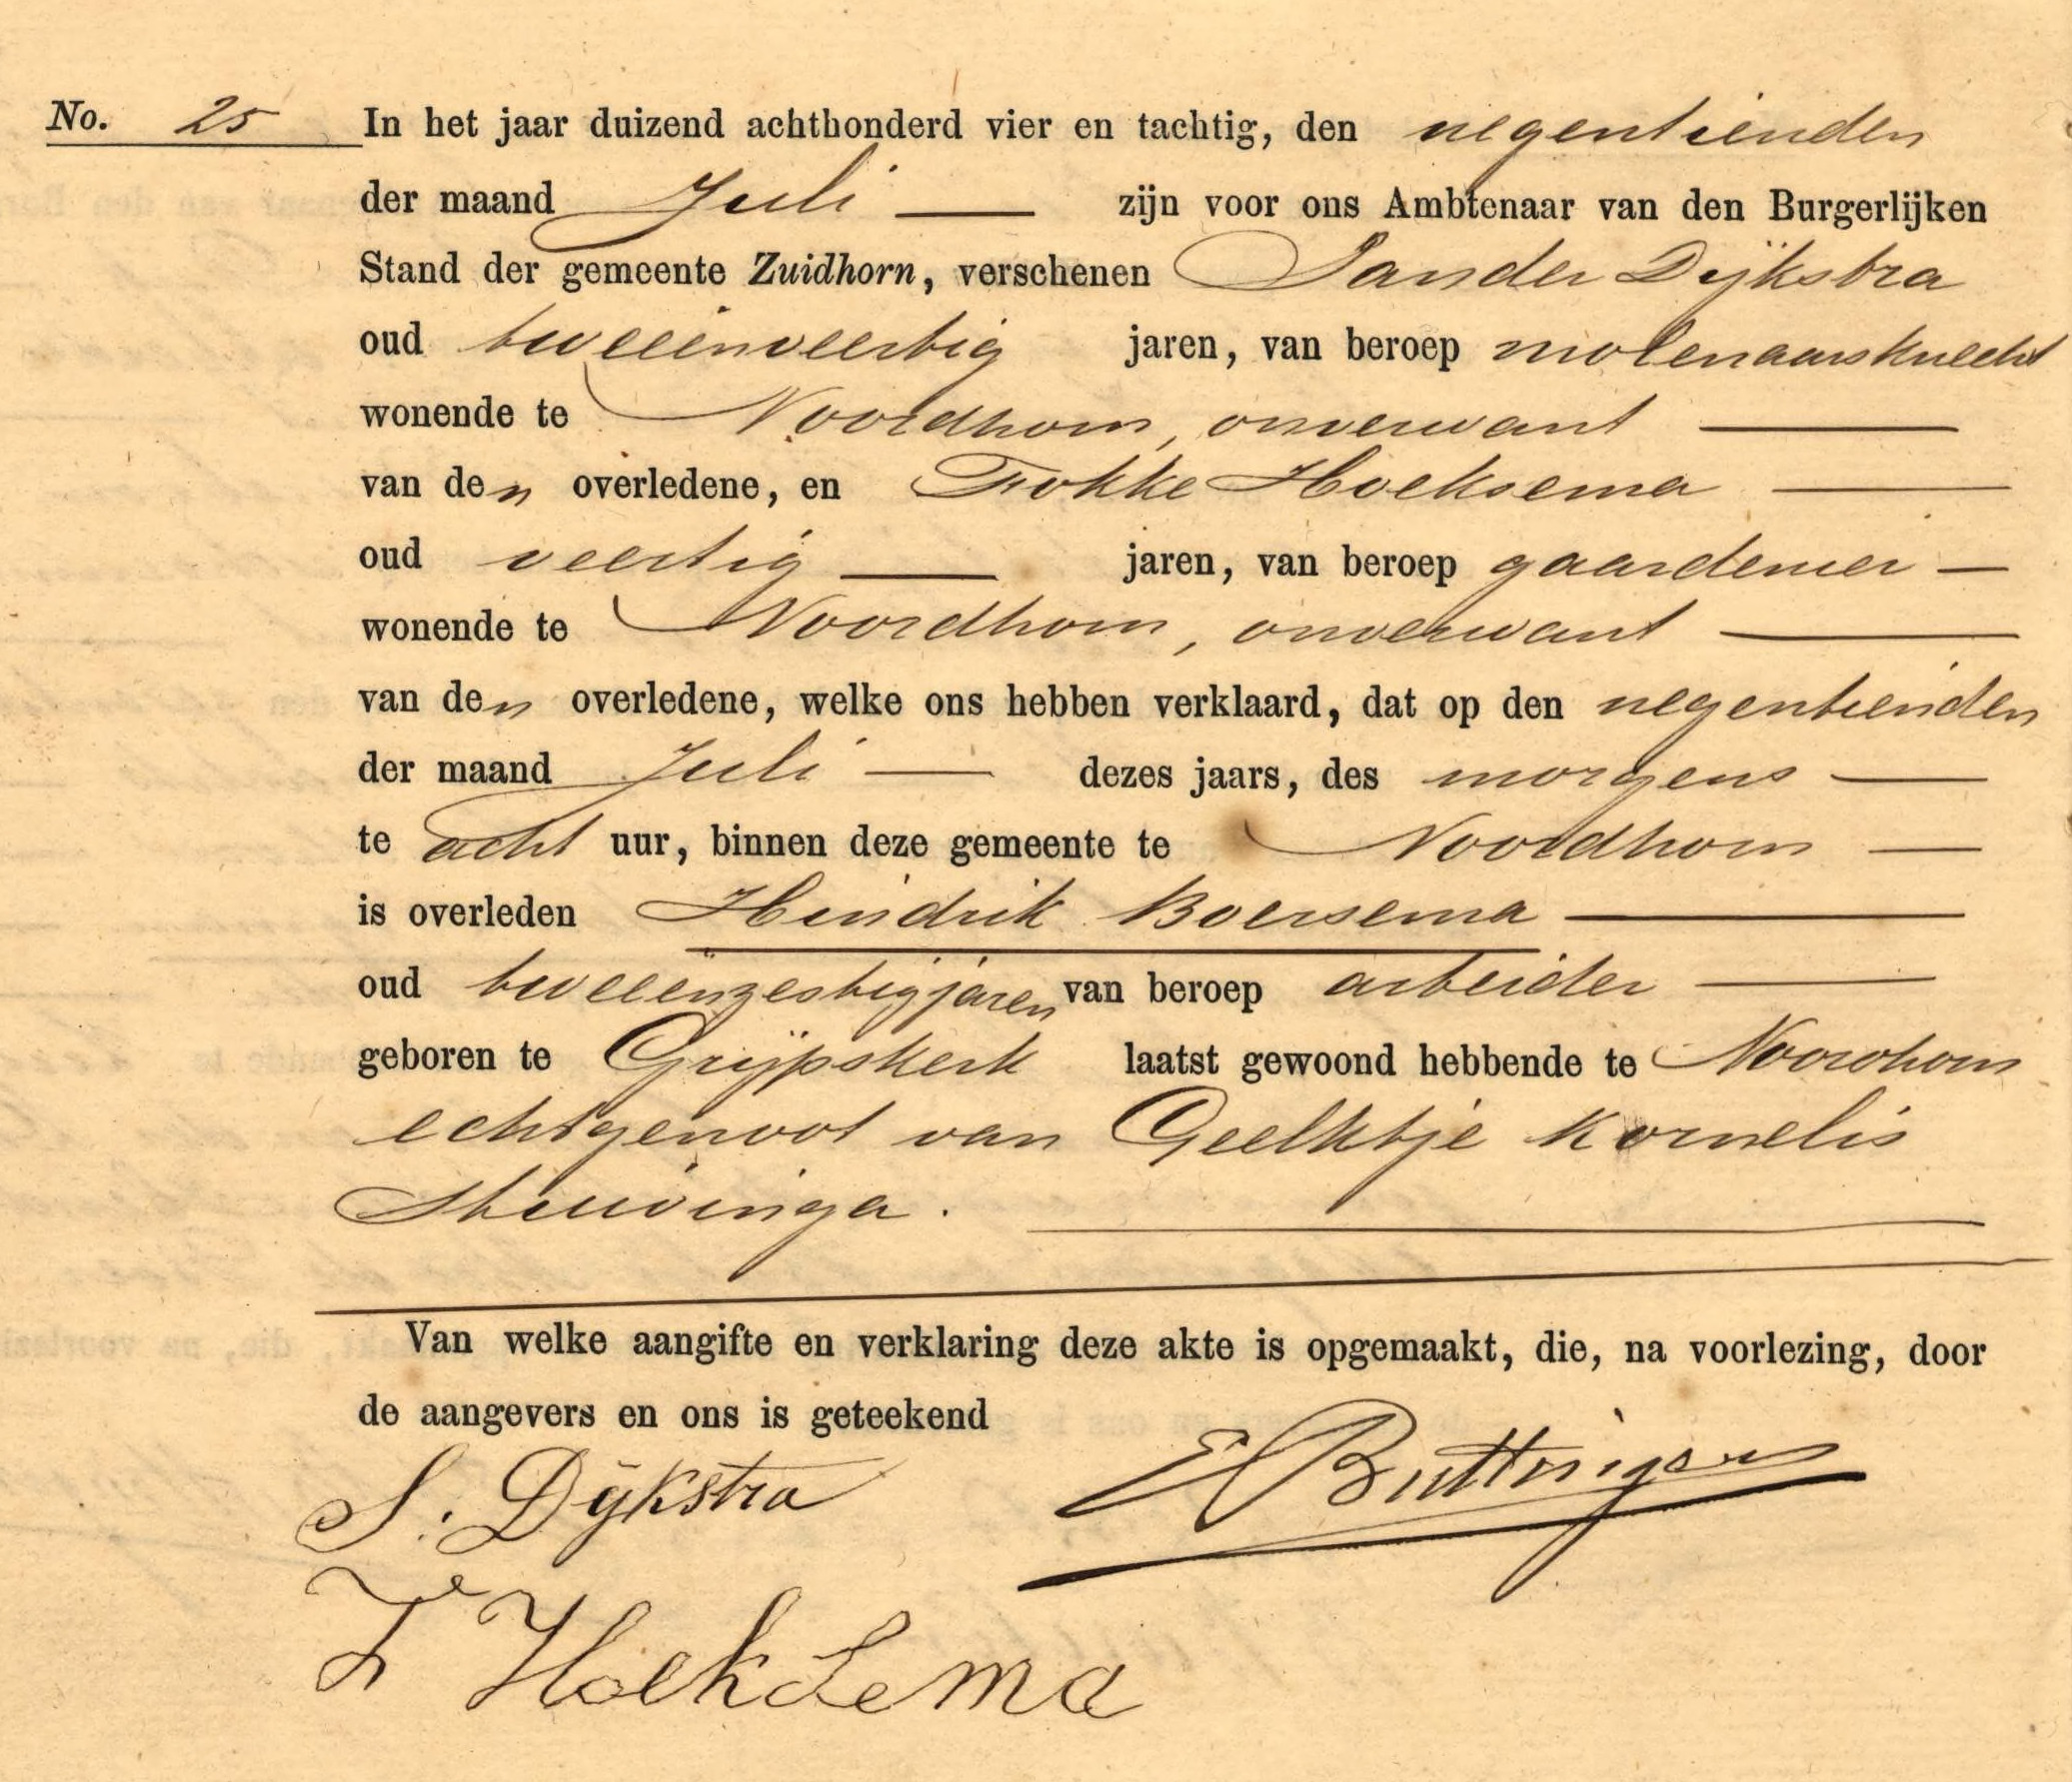 No. 25 In het jaar duizend achthonderd vier en tachtig, den negentienden
der maand Juli — zijn voor ons Ambtenaar van den Burgerlijken
Stand der gemeente Zuidhorn, verschenen Sander Dijkstra
oud tweeënveertig jaren, van beroep molenaarsknecht
wonende te Noordhorn, onverwant —
van den overledene, en Fokke Hoeksema —
oud veertig — jaren, van beroep gaardenier —
wonende te Noordhorn, onverwant —
van den overledene, welke ons hebben verklaard, dat op den negentienden
der maand Juli — dezes jaars, des morgens —
te acht uur, binnen deze gemeente te Noordhorn —
is overleden Hindrik Boersema —
oud tweeënzestig jaren van beroep arbeider —
geboren te Grijpskerk laatst gewoond hebbende te Noordhorn
echtgenoot van Geelktje Kornelis
Stuivinga.
Van welke aangifte en verklaring deze akte is opgemaakt, die, na voorlezing, door
de aangevers en ons is geteekend
S. Dijkstra
F Hoeksema